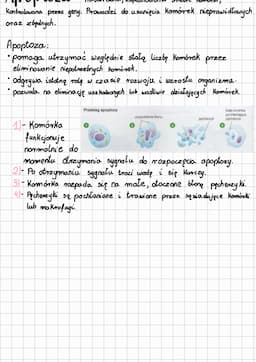 kontrolowana przez geny. Prowadzi do usunięcia komórek nieprawidłowych
oraz zbędnych.
Apoptoza:
• pomaga utrzymać względnie stałą liczbę komórek przez
eliminowanie niepotrzebnych komórek.
• Odgrywa istotną rolę w czasie rozwoju i wzrostu organizmu.
• pozwala na eliminację uszkodzonych lub wadliwie działających komórek.
Przebieg apoptozy
1)- Komórka
funkcjonuje
normalnie do
momentu otrzymania sygnału do rozpoczęcia apoptozy.
2)- Po otrzymaniu sygnału traci wodę i się kurczy.
3)- Komórka rozpada się na małe, otoczone błoną pęcherzyki.
4)- Pęcherzyki są pochłaniane i trawione przez sąsiadujące komórki
lub makrofagi